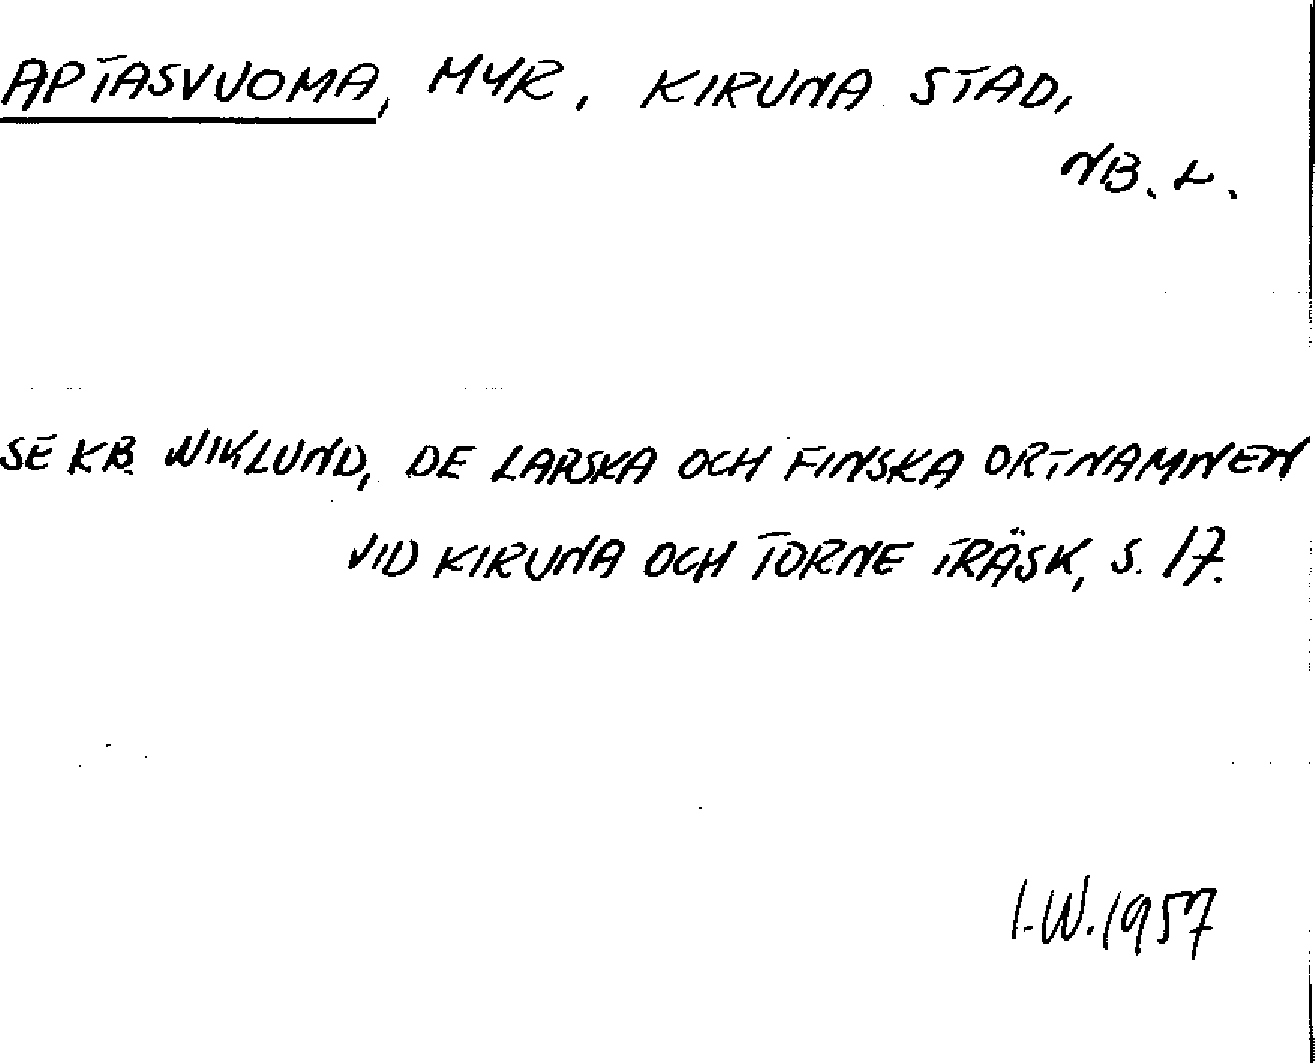 APTASVUOMA, MYR, KIRUNA STAD,
NB. L.
SE K.B. WIKLUND, DE LAPSKA OCH FINSKA ORTNAMNEN
VID KIRUNA OCH TORNE TRÄSK, S. 17.
I.W. 1957